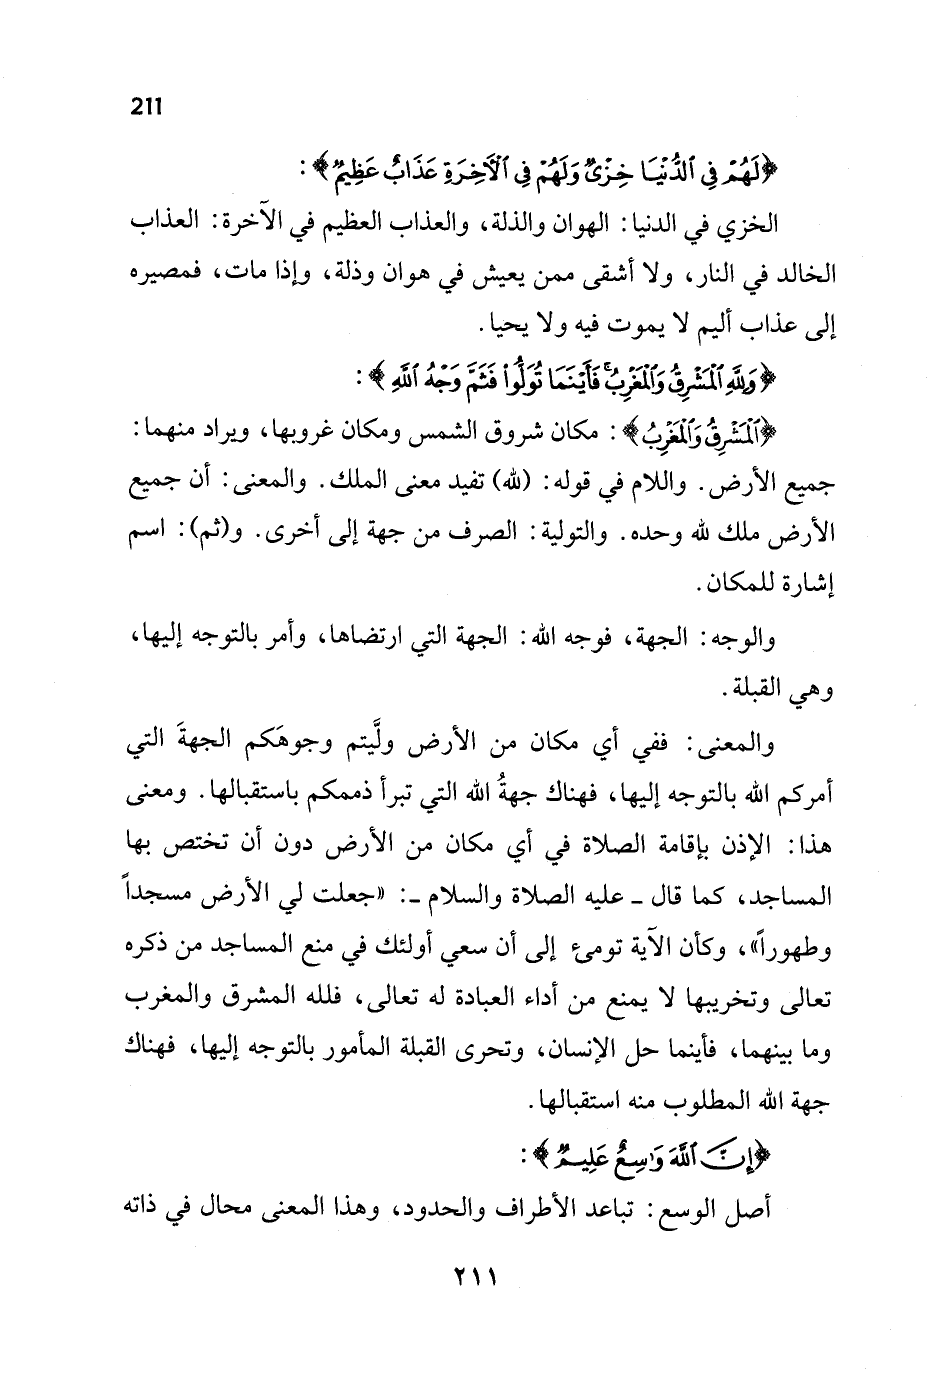 211
﴿لَهُمْ فِي ٱلدُّنْيَا خِزْيٌ وَلَهُمْ فِي ٱلْأَخِرَةِ عَذَابٌ عَظِيمٌ﴾:
الخزي في الدنيا: الهوان والذلة، والعذاب العظيم في الآخرة: العذاب
الخالد في النار، ولا أشقى ممن يعيش في هوان وذلة، وإذا مات، فمصيره
إلى عذاب أليم لا يموت فيه ولا يحيا.
﴿وَلِلَّهِ ٱلْمَشْرِقُ وَٱلْمَغْرِبُ ۚ فَأَيْنَمَا تُوَلُّوا۟ فَثَمَّ وَجْهُ ٱللَّهِ﴾:
﴿ٱلْمَشْرِقُ وَٱلْمَغْرِبُ﴾: مكان شروق الشمس ومكان غروبها، ويراد منهما:
جميع الأرض. واللام في قوله: (لله) تفيد معنى الملك. والمعنى: أن جميع
الأرض ملك لله وحده. والتولية: الصرف من جهة إلى أخرى. و(ثم): اسم
إشارة للمكان.
والوجه: الجهة، فوجه الله: الجهة التي ارتضاها، وأمر بالتوجه إليها،
وهي القبلة.
والمعنى: ففي أي مكان من الأرض ولَّيتم وجوهَكم الجهةَ التي
أمركم الله بالتوجه إليها، فهناك جهةُ الله التي تبرأ ذممكم باستقبالها. ومعنى
هذا: الإذن بإقامة الصلاة في أي مكان من الأرض دون أن تختص بها
المساجد، كما قال ـ عليه الصلاة والسلام ـ: «جعلت لي الأرض مسجداً
وطهوراً»، وكأن الآية تومئ إلى أن سعي أولئك في منع المساجد من ذكره
تعالى وتخريبها لا يمنع من أداء العبادة له تعالى، فلله المشرق والمغرب
وما بينهما، فأينما حل الإنسان، وتحرى القبلة المأمور بالتوجه إليها، فهناك
جهة الله المطلوب منه استقبالها.
﴿إِنَّ ٱللَّهَ وَٰسِعٌ عَلِيمٌ﴾:
أصل الوسع: تباعد الأطراف والحدود، وهذا المعنى محال في ذاته
٢١١